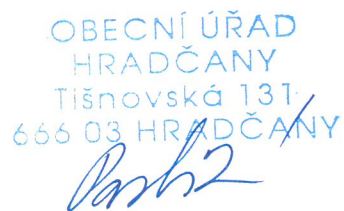 OBECNÍ ÚŘAD
HRADČANY
Tišnovská 131
666 03 HRADČANY